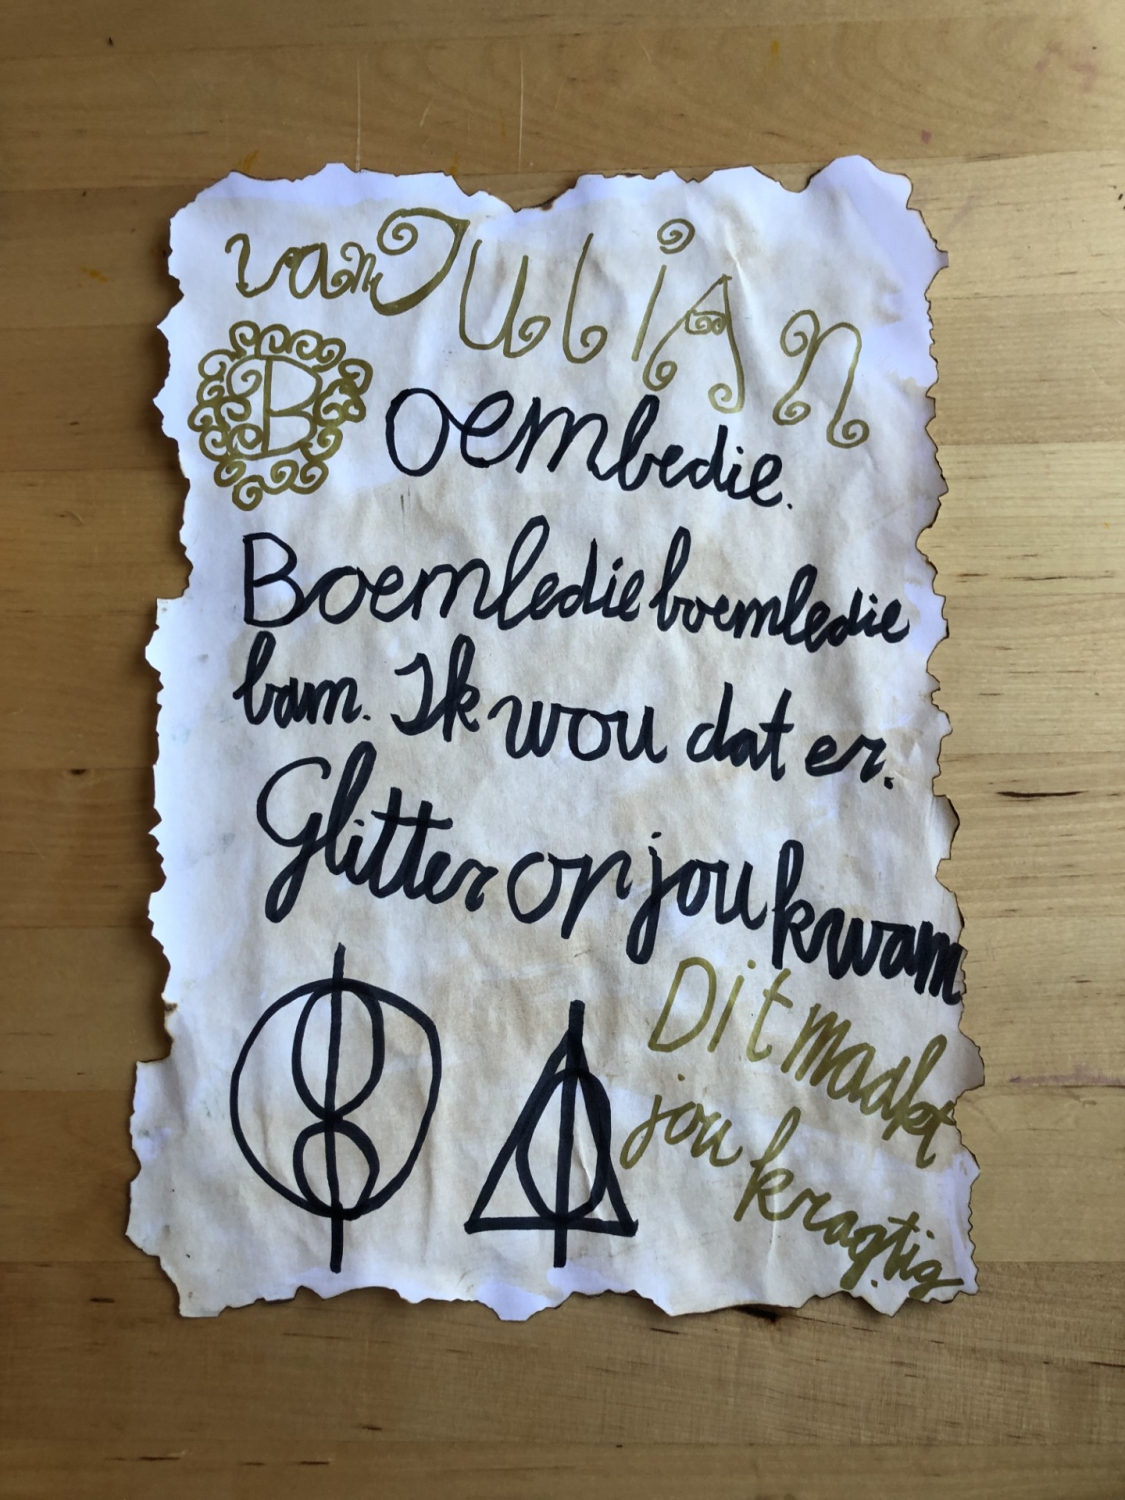 van JUliAn
Boembedie.
Boemledie boemledie
bam. Ik wou dat er.
Glitter op jou kwam
Dit maakt
jou kragtig.